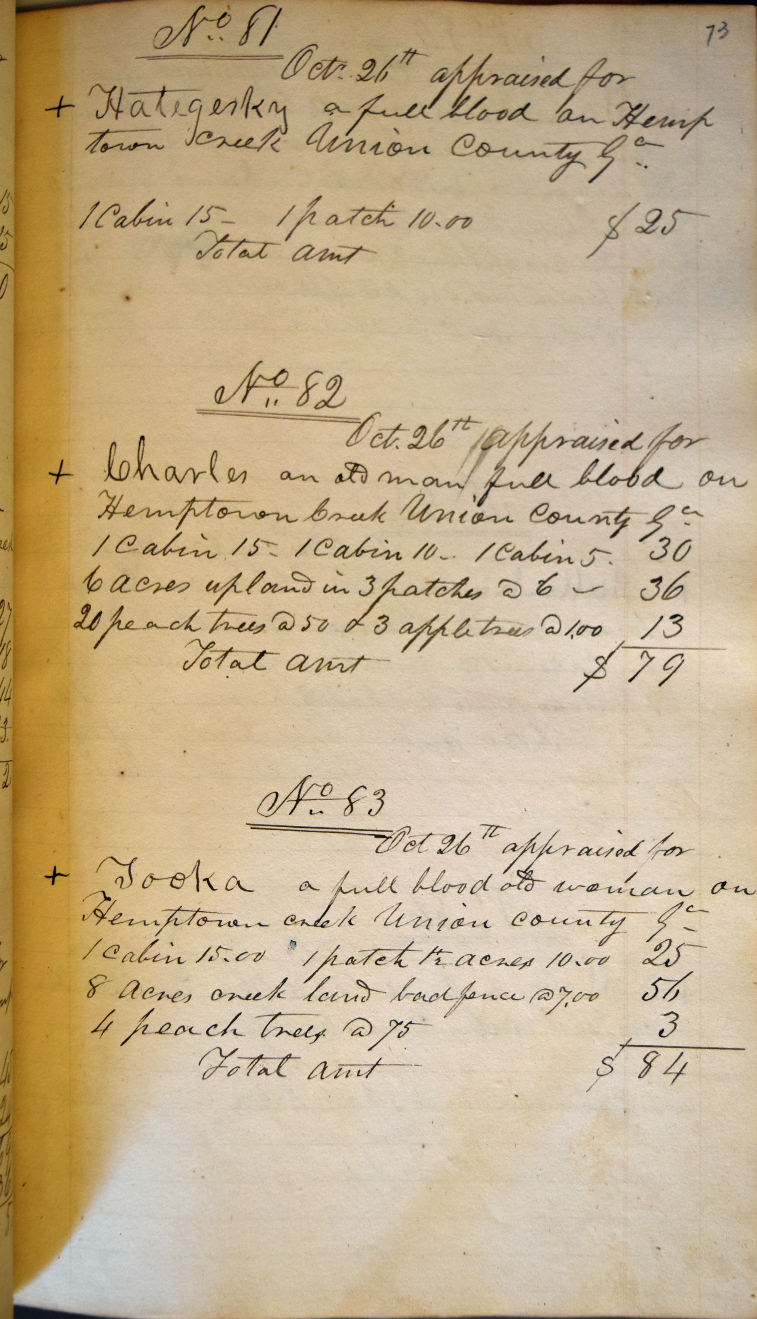 73
No. 81
Oct. 26th appraised for
+ Hategesky a full blood on Hemp
town creek Union County Ga
1 Cabin 15- 1 patch 10.00 $25
Total amt
No. 82
Oct. 26th appraised for
+ Charles an old man full blood on
Hemptown Creek Union County Ga
1 Cabin 15- 1 Cabin 10- 1 Cabin 5. 30
6 acres upland in 3 patches @ 6 - 36
20 peach trees @ 50 & 3 apple trees @ 1.00 13
Total amt $79
No. 83
Oct 26th appraised for
+ Tooka a full blood old woman on
Hemptown creek Union county Ga
1 cabin 15.00 1 patch acres 10.00 25
8 Acres creek land bad fence @ 7.00 56
4 peach trees @ 75 3
Total amt $84